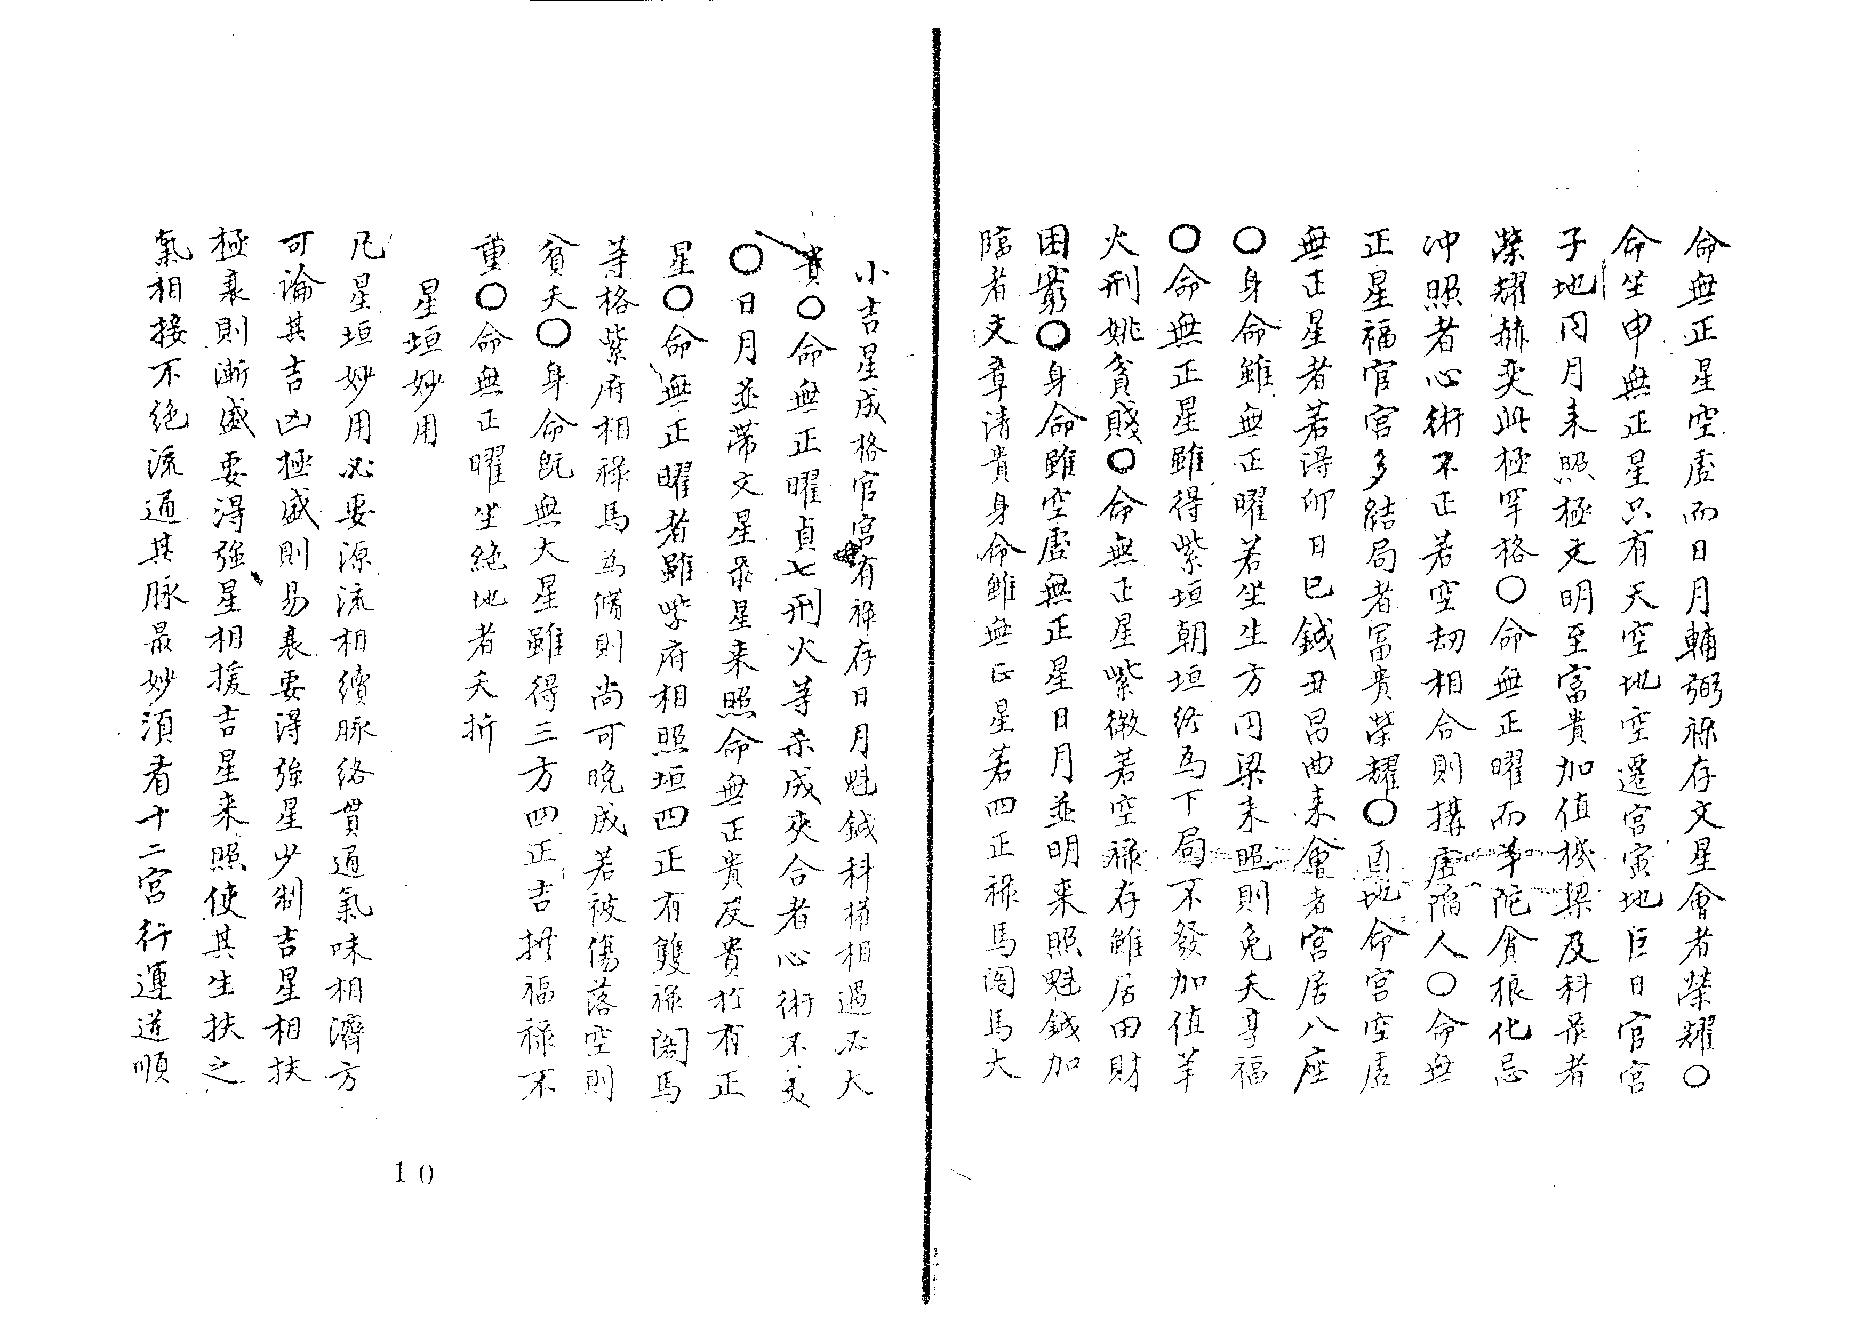 命無正星空虛而日月輔弼祿存文星會者榮耀〇
命坐申無正星只有天空地空遷宮寅地巨日官宮
子地同月未照極文明至富貴加值機梁及科彔者
榮耀赫奕此極罕格〇命無正曜而羊陀貪狼化忌
冲照者心術不正若空刼相合則搆虛陷人〇命無
正星福官宮多結局者富貴榮耀〇酉地命宮空虛
無正星者若得卯日巳鉞丑昌曲来會者宮居八座
〇身命雖無正曜若坐生方同梁未照則免夭享福
〇命無正星雖得紫垣朝垣終為下局不發加值羊
火刑姚貪賤〇命無正星紫微若空祿存雖居田財
困窮〇身命雖空虛無正星日月並明来照魁鉞加
臨者文章清貴身命雖無正星若四正祿馬閣馬大
小吉星成格官宮有祿存日月魁鉞科梯相遇必大
貴〇命無正曜貞七刑火等杀成夾合者心術不美
〇日月並帶文星彔星来照命無正貴反貴於有正
星〇命無正曜者雖紫府相照垣四正有雙祿閣馬
等格紫府相祿馬為條則尚可晚成若被傷落空則
貧夭〇身命旣無大星雖得三方四正吉拱福祿不
重〇命無正曜坐絶地者夭折
星垣妙用
凡星垣妙用必要源流相續脉络貫通氣味相濟方
可論其吉凶極盛則易衰要得強星少制吉星相扶
極衰則漸盛要得強星相援吉星来照使其生扶之
氣相接不絶流通其脉最妙須看十二宮行運逆順
10